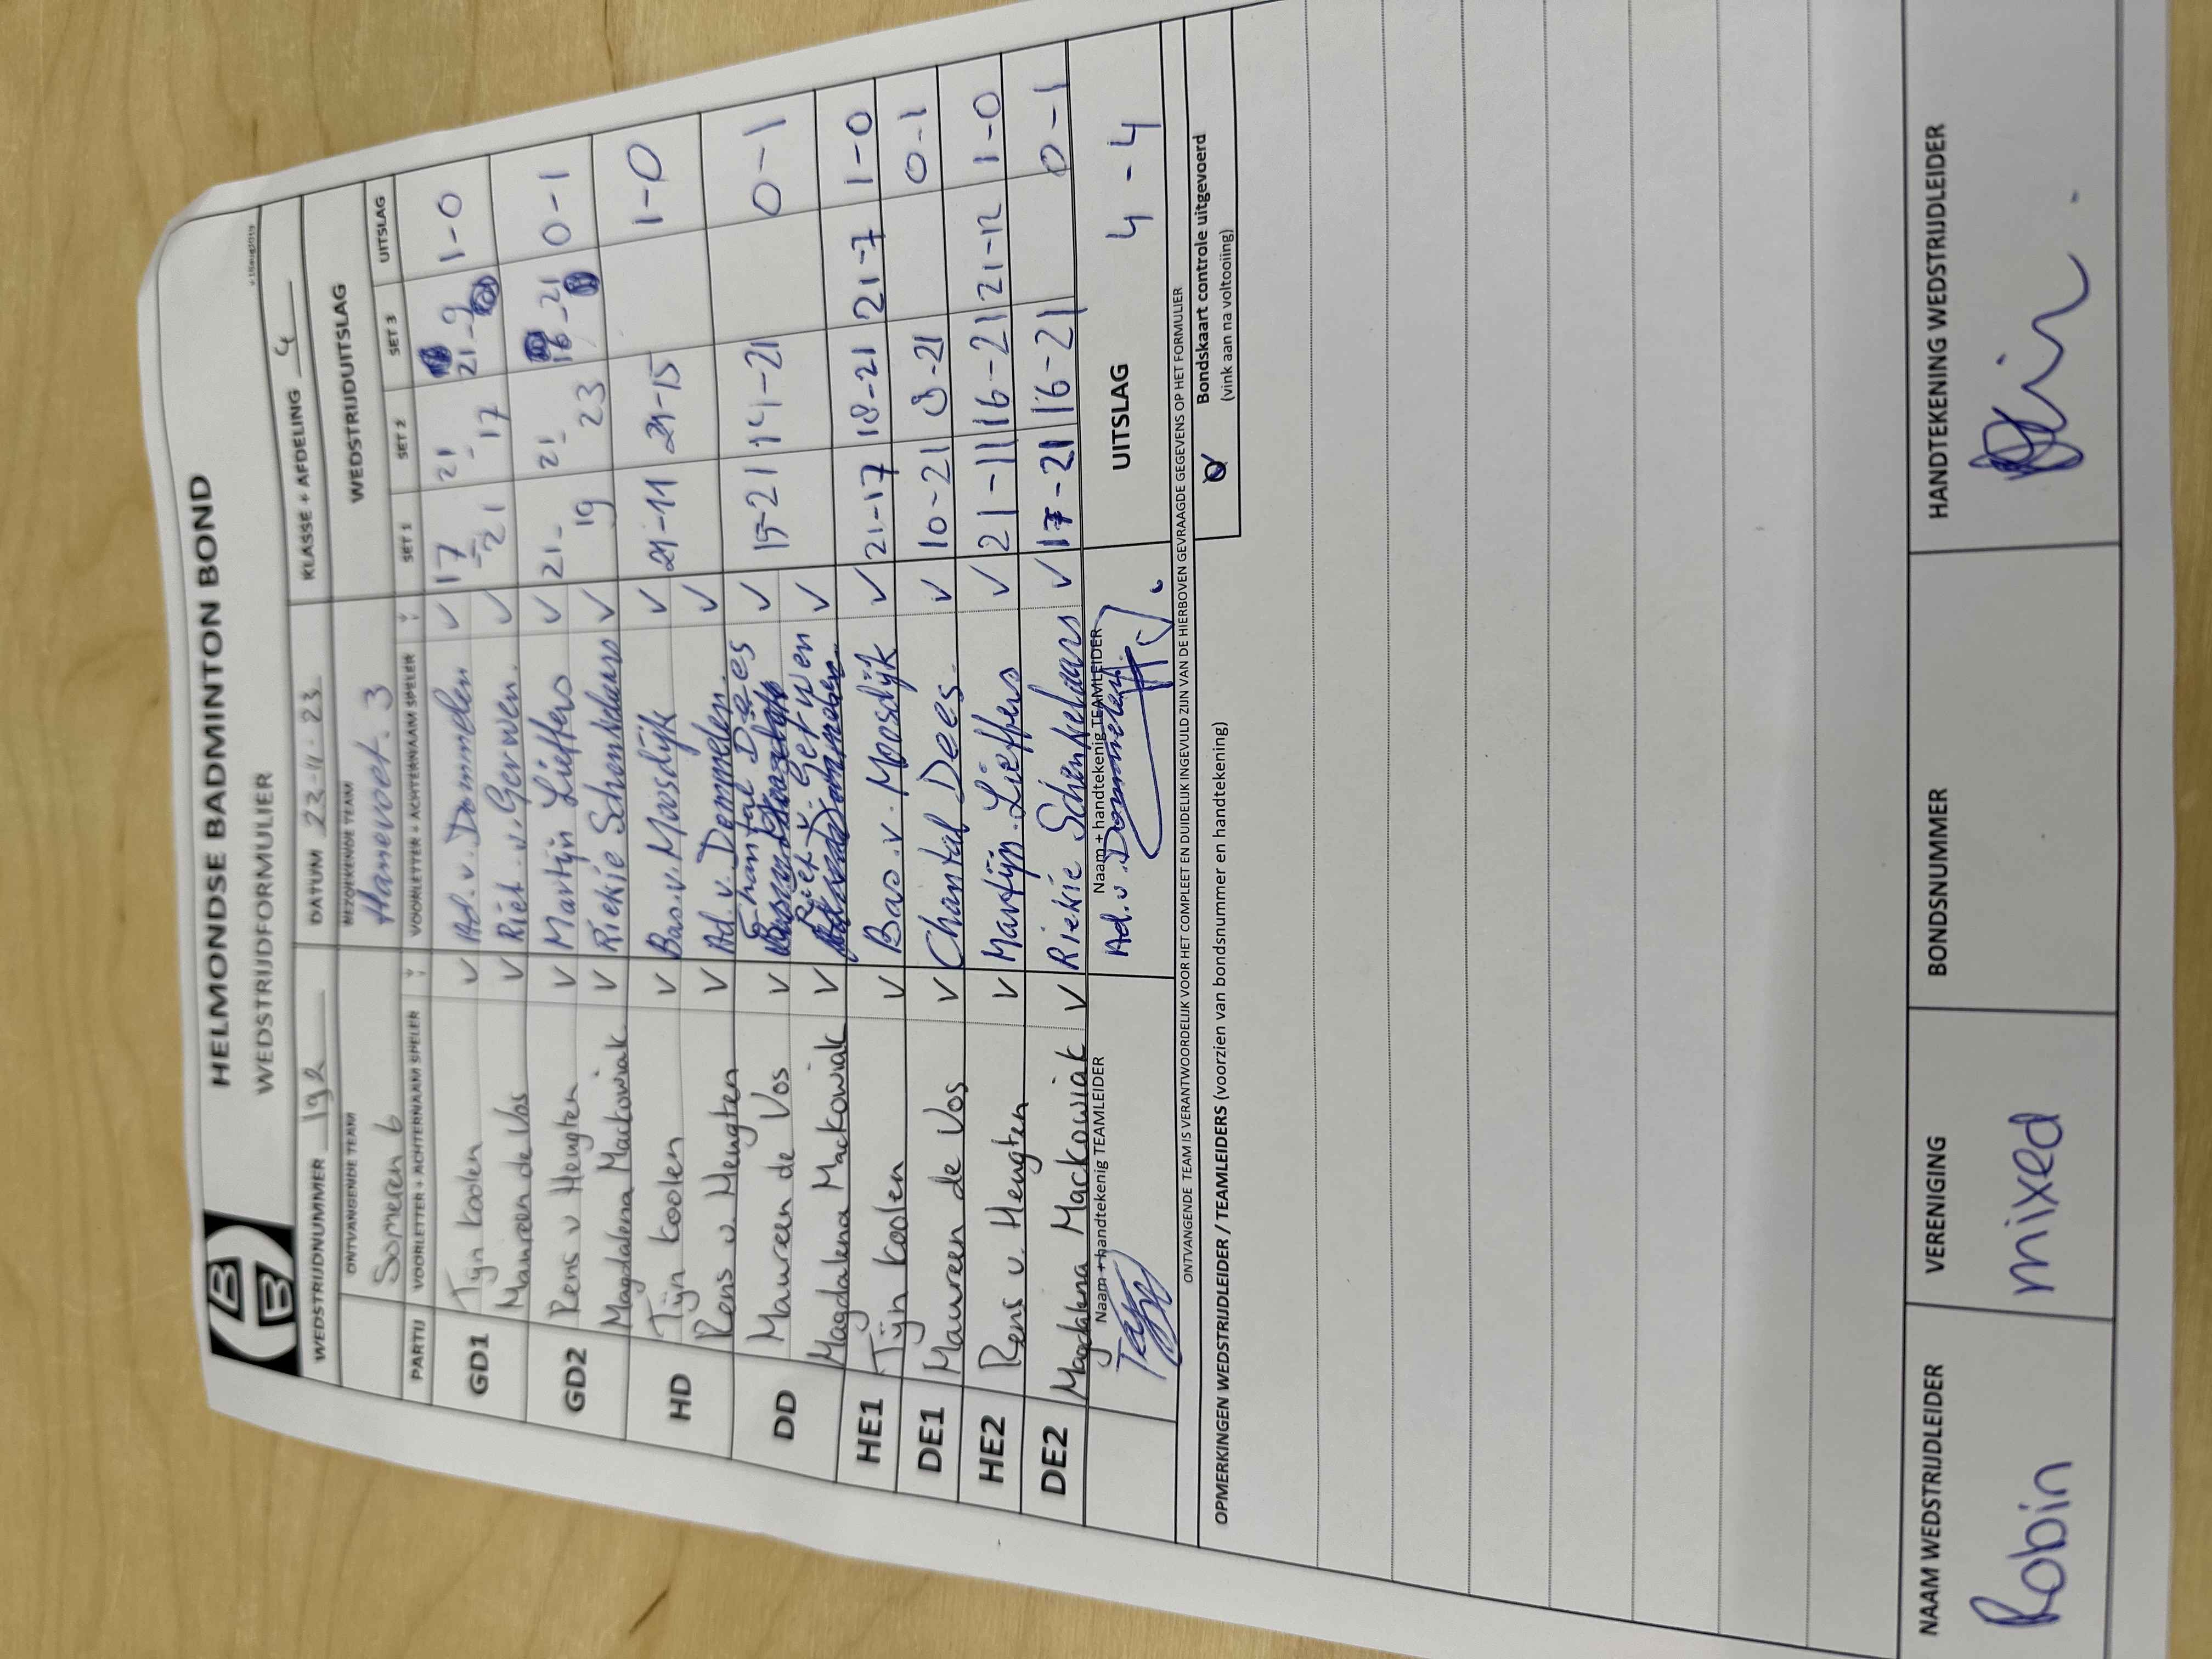 HELMONDSE BADMINTON BOND
WEDSTRIJDFORMULIER
WEDSTRIJDNUMMER 192 DATUM 23-11-23 KLASSE + AFDELING 4
ONTVANGENDE TEAM BEZOEKENDE TEAM WEDSTRIJDUITSLAG
Someren 6 Hanevoet. 3
PARTIJ VOORLETTER + ACHTERNAAM SPELER V VOORLETTER + ACHTERNAAM SPELER V SET 1 SET 2 SET 3 UITSLAG
GD1 Tijn Koolen V Ad. v. Dommelen V 17-21 21-17 21-9 1-0
Maureen de Vos V Riet. v. Gerwen. V
GD2 Rens v Heugten V Martijn Lieffers V 21-19 21-23 16-21 0-1
Magdalena Mackowiak V Riekie Schenkelaars V
HD Tijn Koolen V Bas. v. Moosdijk V 21-11 21-15 1-0
Rens v. Heugten V Ad. v. Dommelen. V
DD Maureen de Vos V Chantal Dees V 15-21 14-21 0-1
Magdalena Mackowiak V Riet v. Gerwen V
HE1 Tijn Koolen V Bas. v. Moosdijk V 21-17 18-21 21-7 1-0
DE1 Maureen de Vos V Chantal Dees V 10-21 8-21 0-1
HE2 Rens v. Heugten V Martijn. Lieffers V 21-11 16-21 21-12 1-0
DE2 Magdalena Mackowiak V Riekie Schenkelaars V 17-21 16-21 0-1
Naam + handtekenig TEAMLEIDER Naam + handtekenig TEAMLEIDER UITSLAG 4-4
Ad. v. Dommelen
ONTVANGENDE TEAM IS VERANTWOORDELIJK VOOR HET COMPLEET EN DUIDELIJK INGEVULD ZIJN VAN DE HIERBOVEN GEVRAAGDE GEGEVENS OP HET FORMULIER
OPMERKINGEN WEDSTRIJDLEIDER / TEAMLEIDERS (voorzien van bondsnummer en handtekening)
Bondskaart controle uitgevoerd
(vink aan na voltooiing)
NAAM WEDSTRIJDLEIDER VERENIGING BONDSNUMMER HANDTEKENING WEDSTRIJDLEIDER
Robin mixed